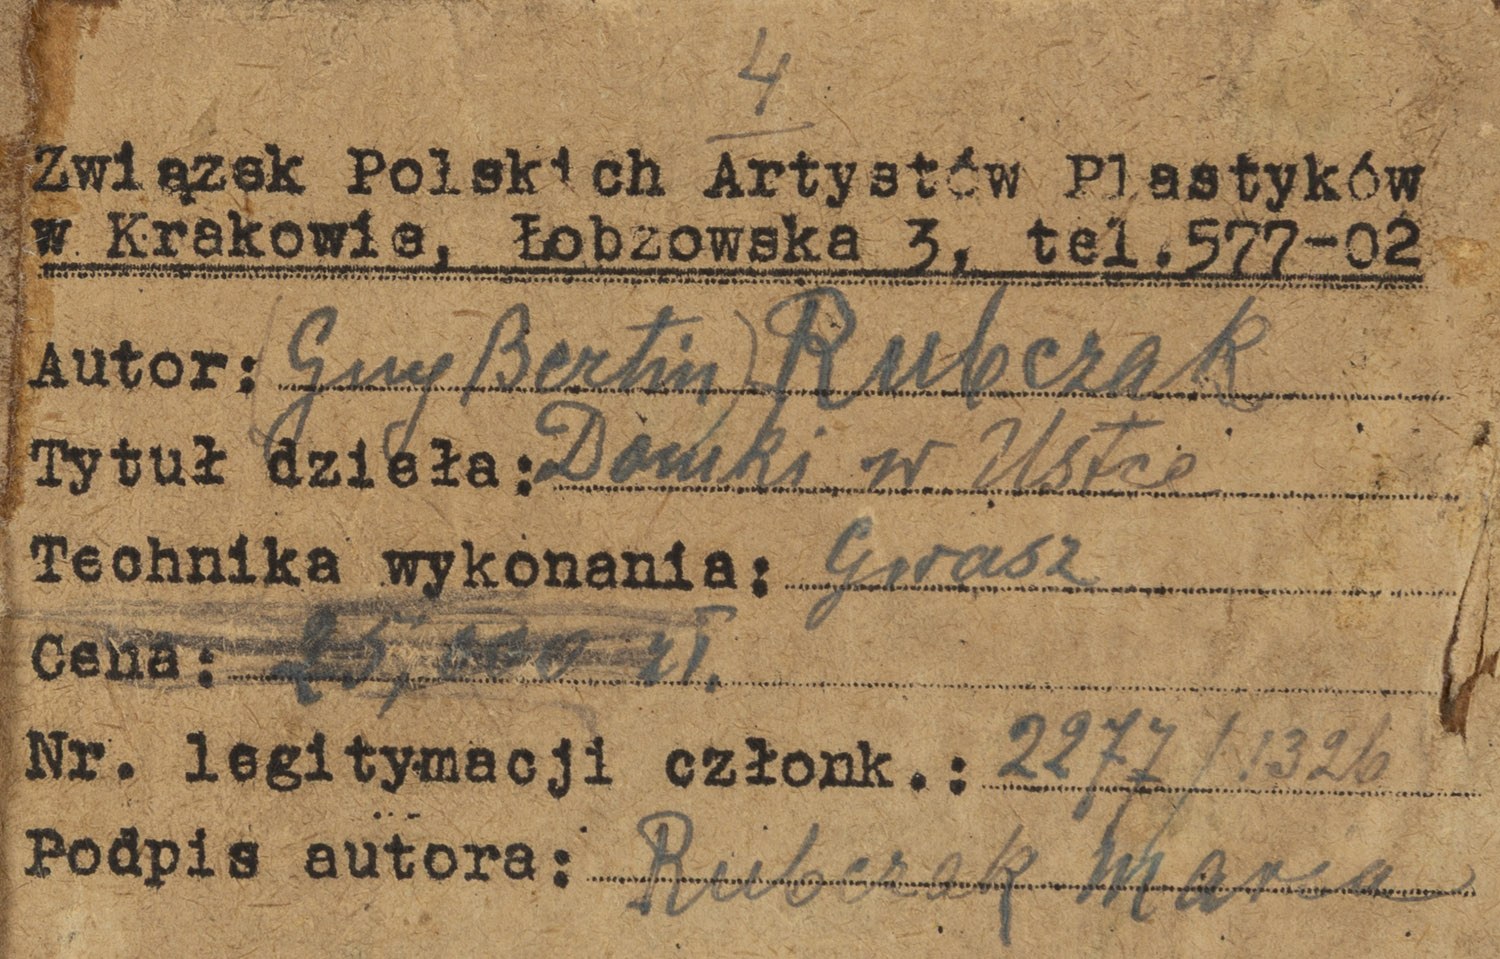 4
Związek Polskich Artystów Plastyków
w Krakowie, Łobzowska 3, tel.577-02
Autor: (Guy Bertin) Rubczak
Tytuł dzieła: Domki w Ustce
Technika wykonania: Gwasz
Cena: 25,000 zł.
Nr. legitymacji członk.: 2277/1326
Podpis autora: Rubczak Maria